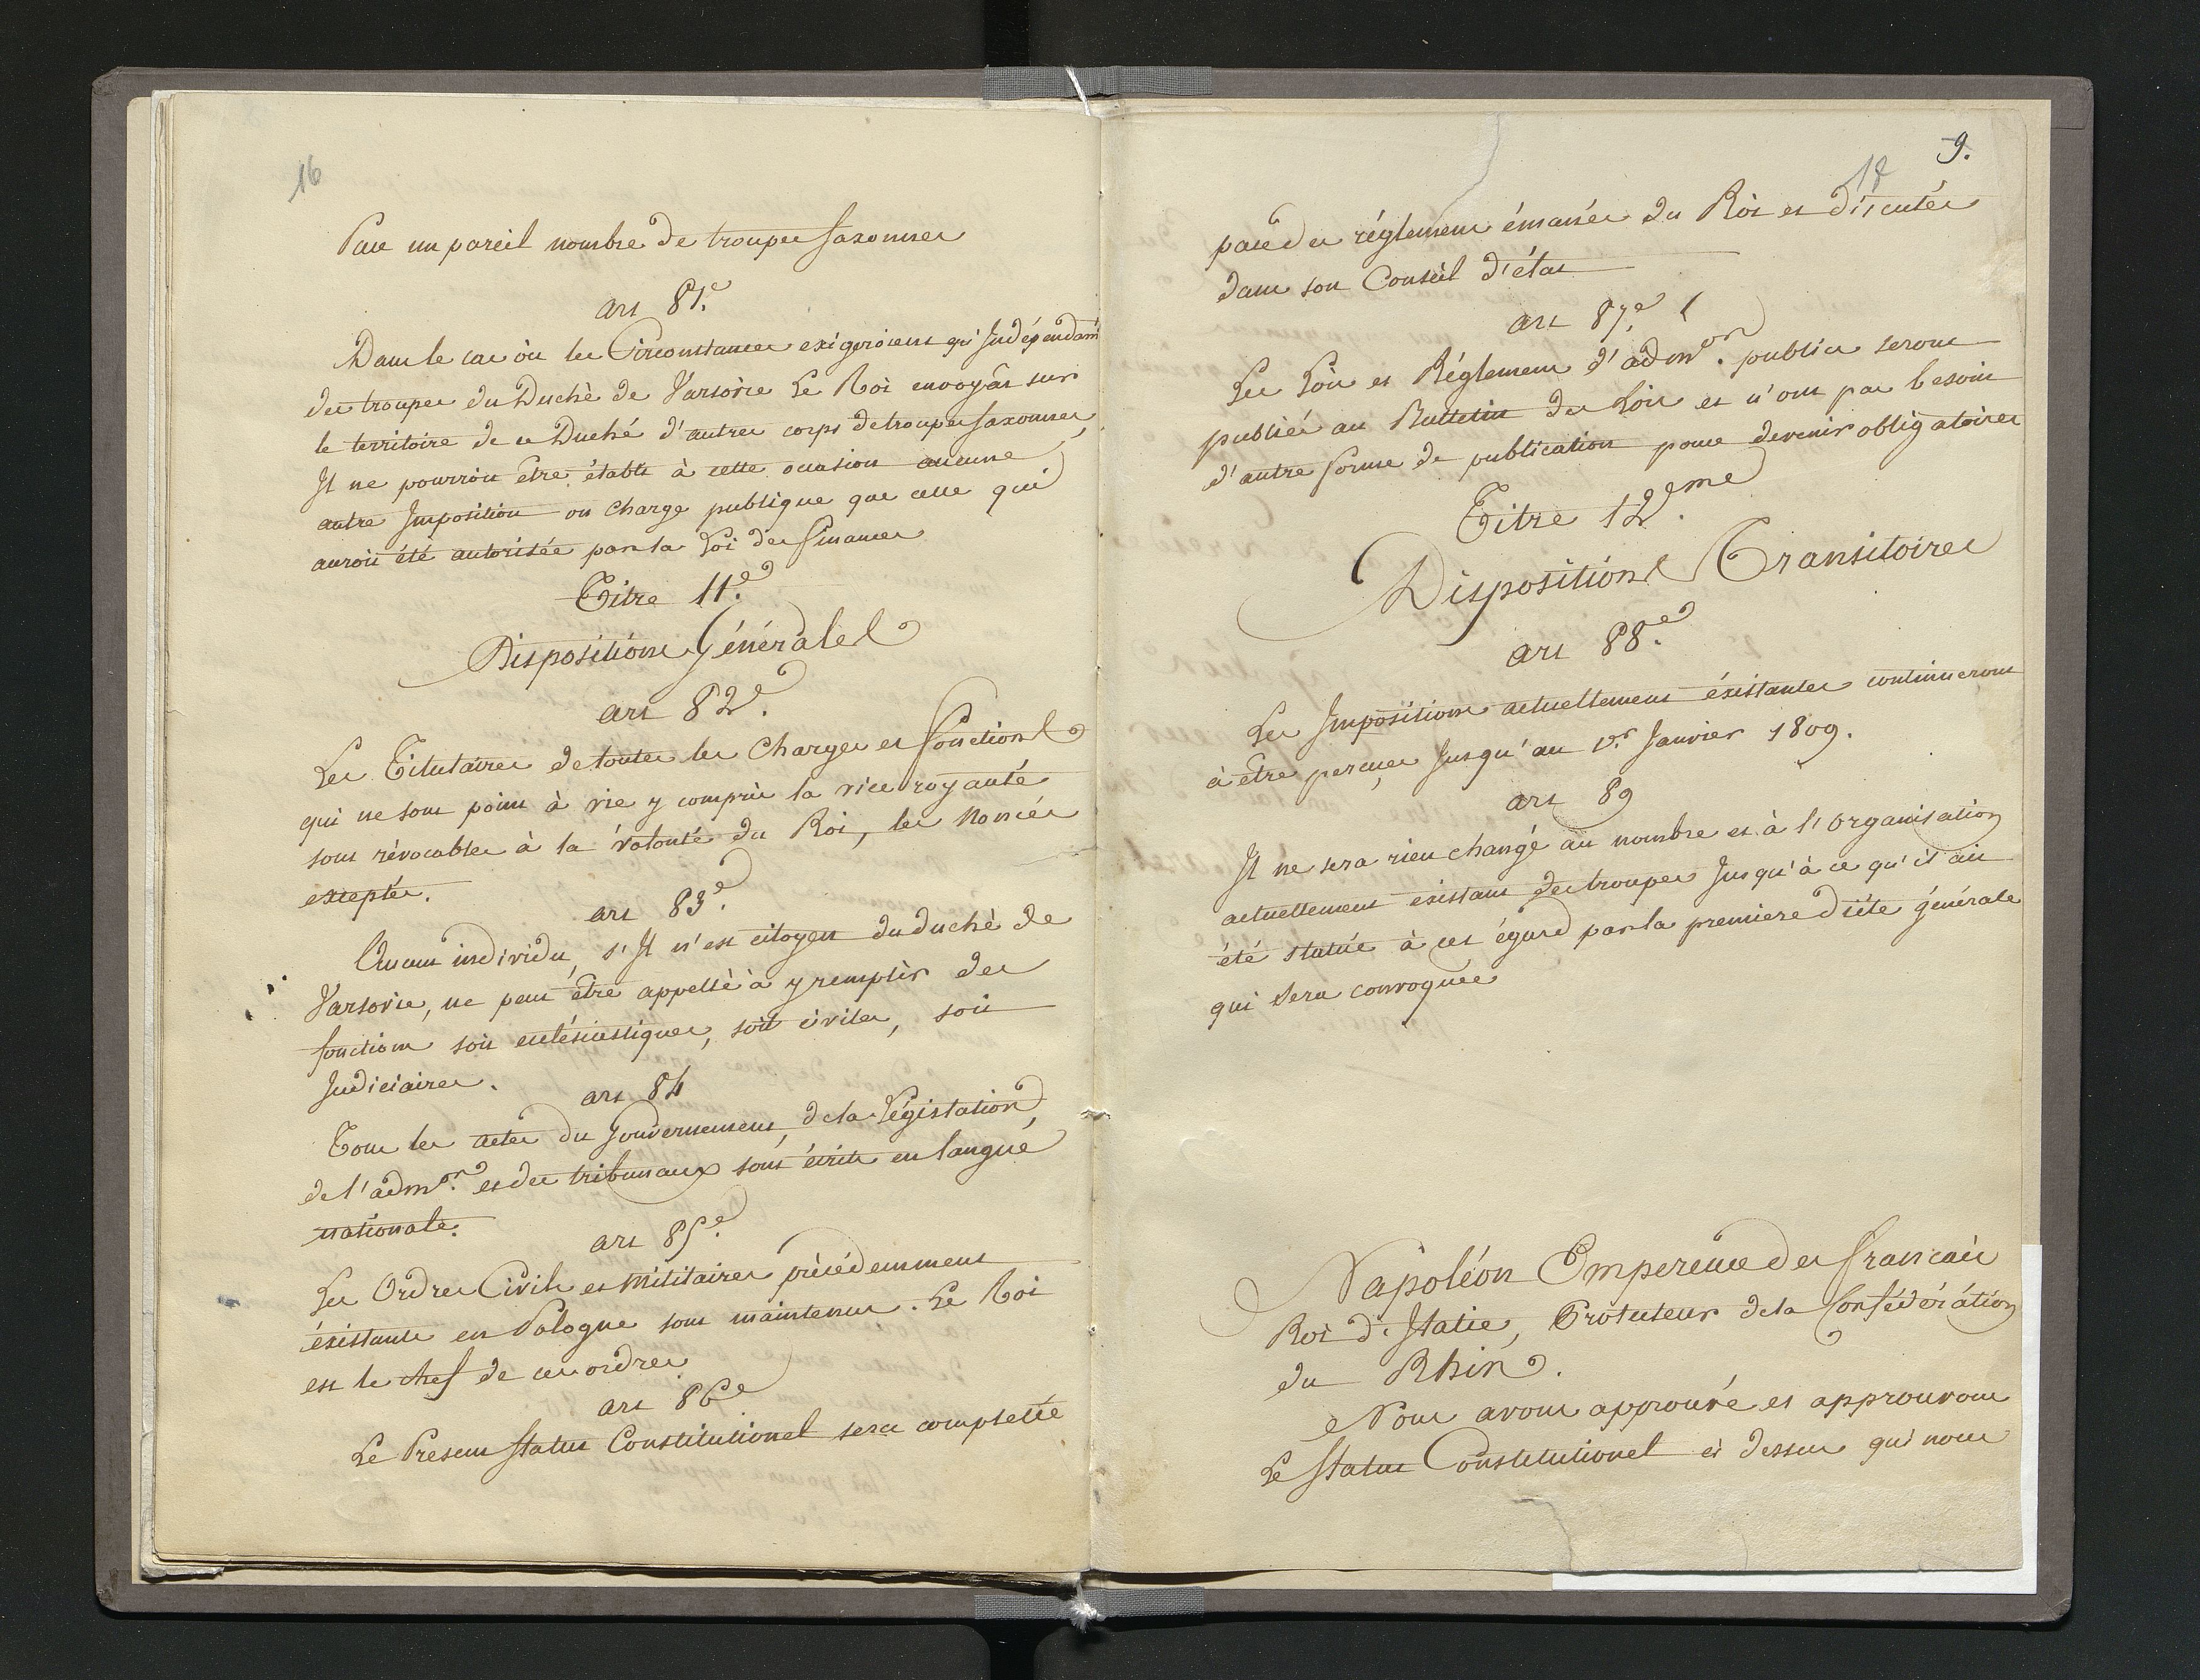 16
Par un pareil nombre de troupes Saxonnes
art 81.e
Dans le cas où les Circonstances exigeroient qu'Indépendamt
des troupes du Duché de Varsovie Le Roi envoyât sur
le territoire de ce Duché d'autres corps de troupes saxonnes,
Il ne pourroit être établi à cette ocasion aucune
autre Imposition ou charge publique que celle qui
auroit été autorisée par la Loi des finances
Titre 11.e
Dispositions Générales
art 82.e
Les Titulaires de toutes les Charges et fonctions
qui ne sont point à vie y compris la vice royauté
sont révocables à la volonté du Roi, les Nonces
exceptés.
art 83.e
Aucun individu, s'Il n'est citoyen du duché de
Varsovie, ne peut être appellé à y remplir des
fonctions soit eclésiastiques, soit civiles, soit
Judiciaires.
art 84
Tous les actes du Gouvernement, de la Législation,
de l'admon. et des tribunaux sont écrits en langue
nationale.
art 85.e
Les Ordres Civils et Militaires précédemment
éxistants en Pologne sont maintenus. Le Roi
est le chef de ces ordres
art 86e
Le Present Statut Constitutionel sera completté
9.
18
par des réglemens émanés du Roi et discutés
dans son Conseil d'état
art 87.e
Les Lois et Réglemens d'admon. publics seront
publiés au Bulletin des Lois et n'ont pas besoin
d'autre forme de publication pour devenir obligatoires
Titre 12.eme
Dispositions Transitoires
art 88.e
Les Impositions actuellement éxistantes continueront
à être percues Jusqu'au 1.er Janvier 1809.
art 89
Il ne sera rien changé au nombre et à l'Organisation
actuellement existant des troupes Jusqu'à ce qu'il ait
été statué à cet égard par la premiere diéte générale
qui sera convoquée
Napoléon Empereur des francais
Roi d'Italie, Protecteur de la Confédération
du Rhin.
Nous avons approuvé et approuvons
Le Statut Constitutionel ci dessus qui nous